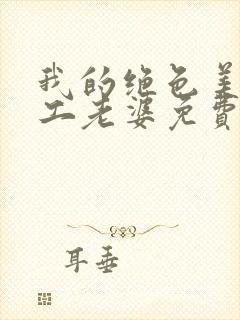 我的绝色美
工老婆免費
耳垂